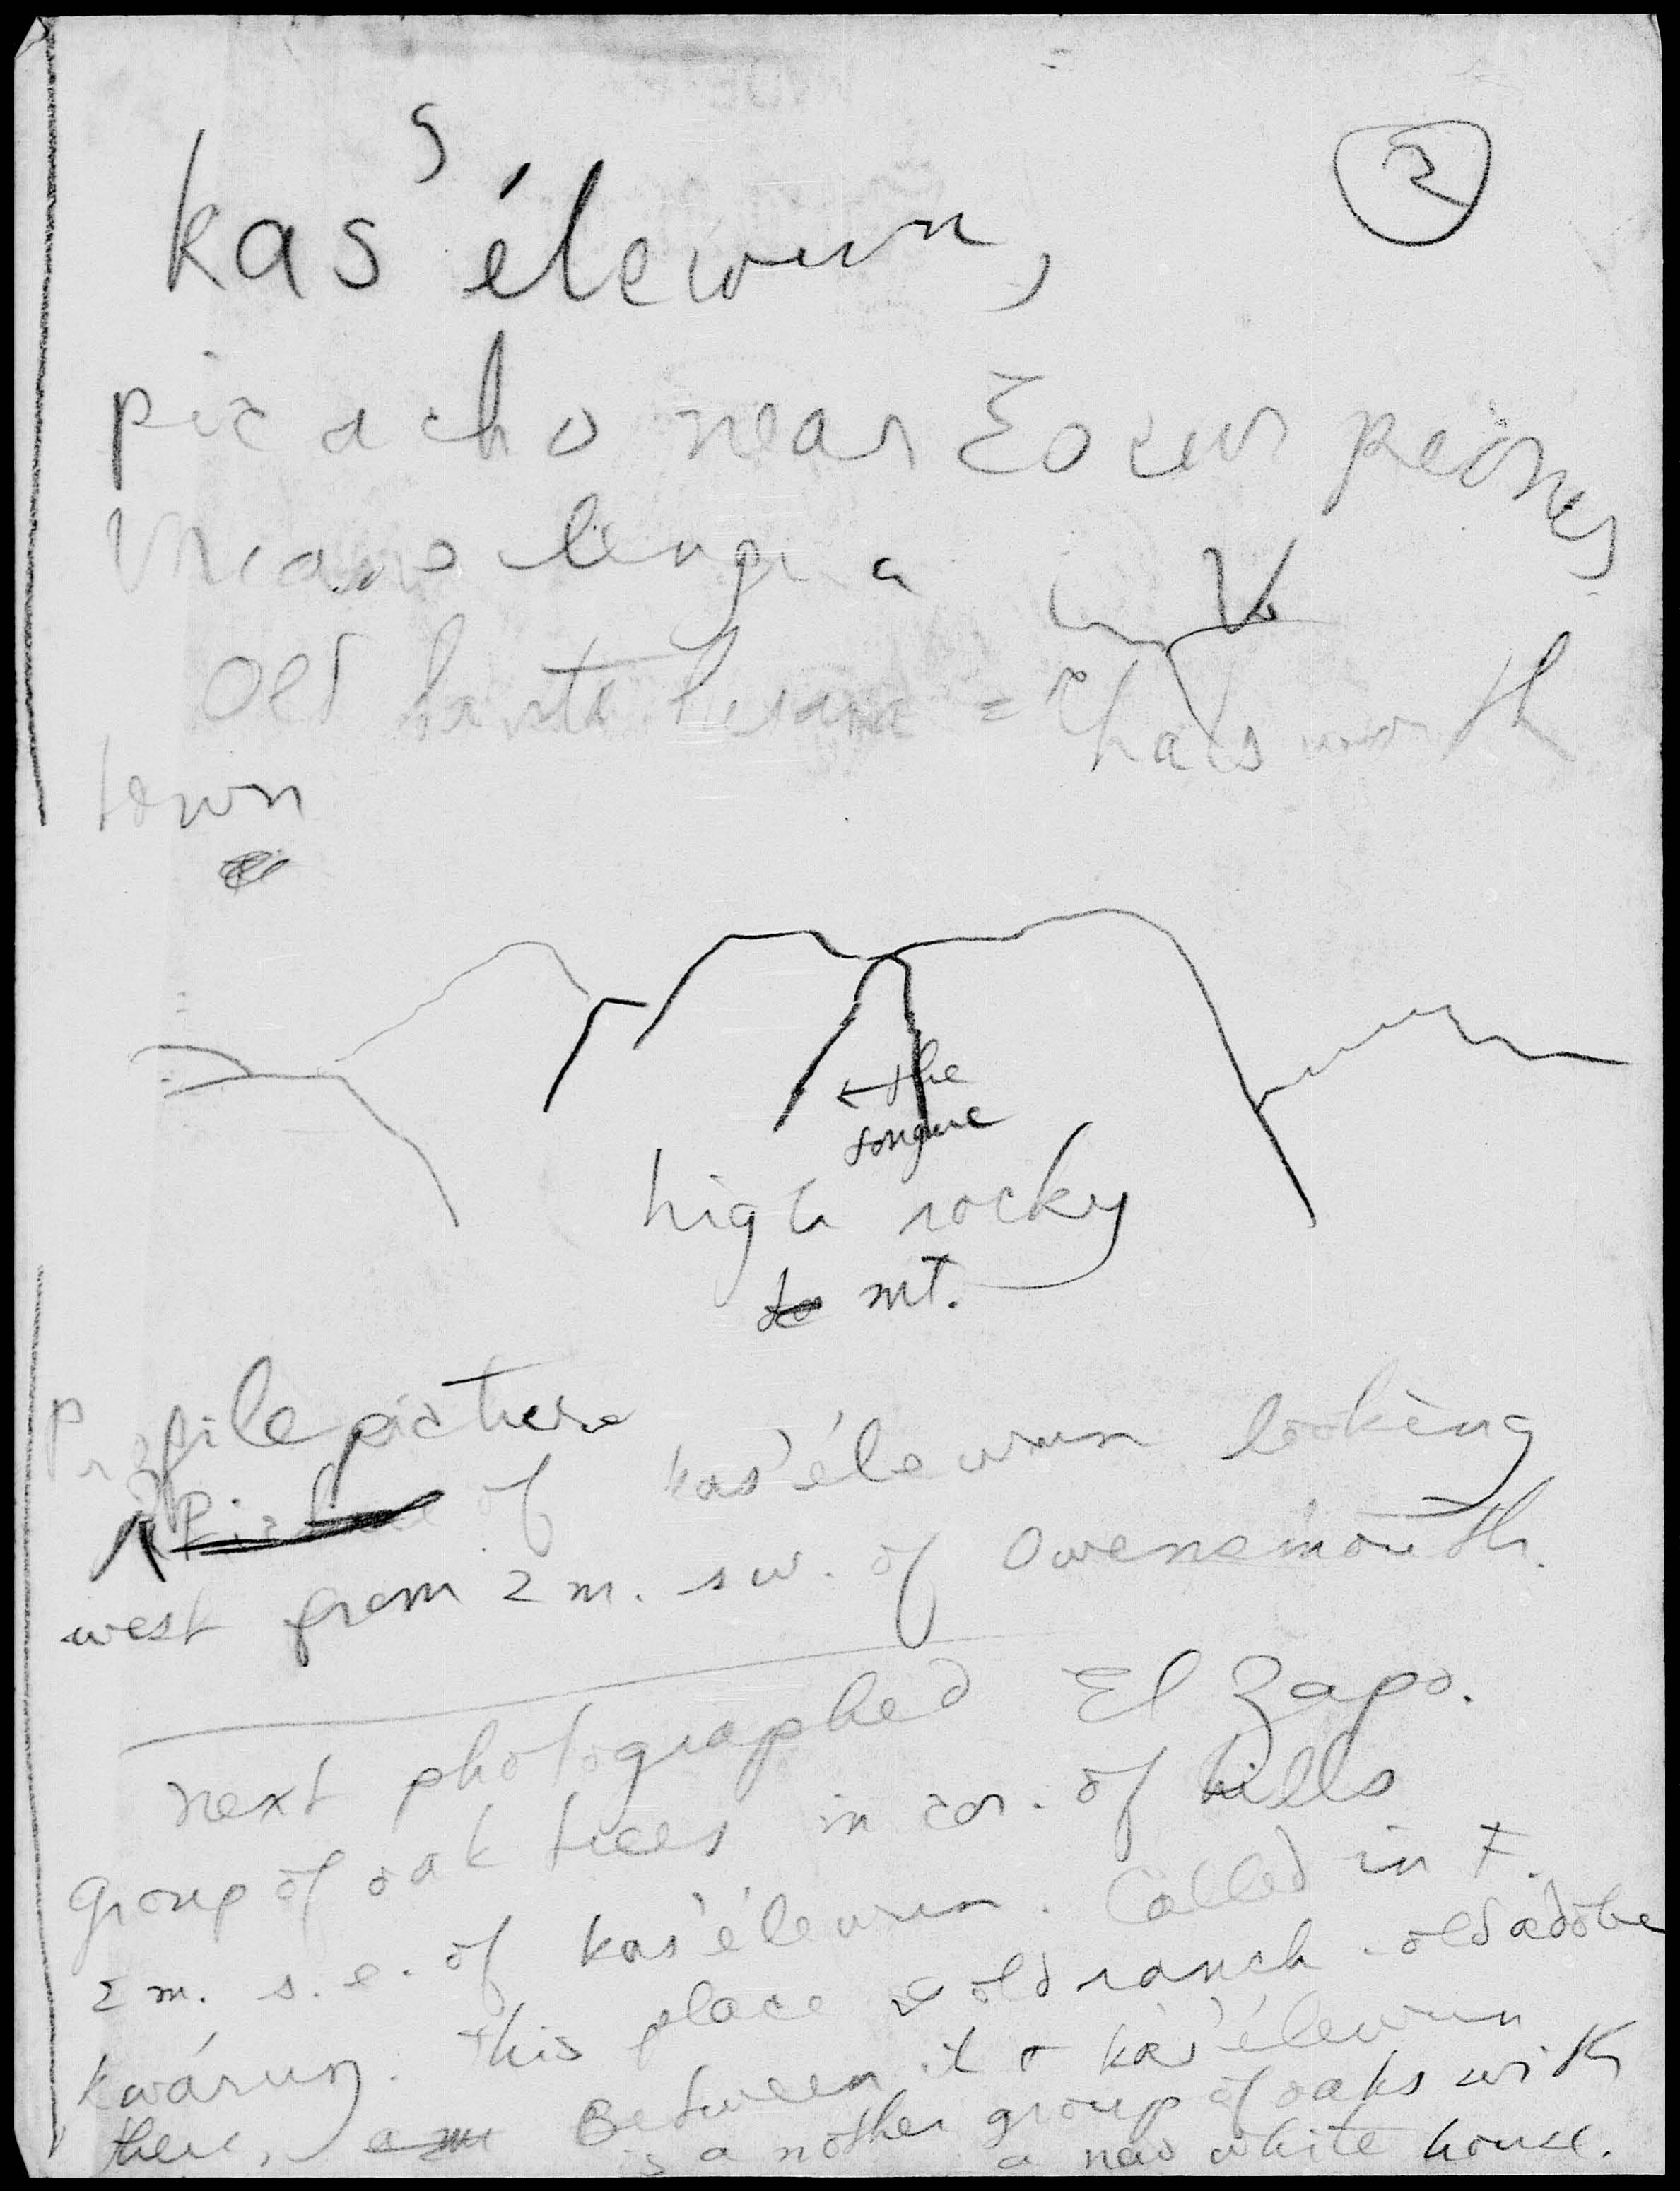 ②
kas'élewun,
picacho near
lengua
V.
old Santa Susana = Chatsworth
town
← the
tongue
high rocky
mt.
Profile picture
of kas'élewun looking
west from 2 m. sw. of Owensmouth.
next photographed El Zapo.
group of oak trees in cor. of hills
2 m. s.e. of kas'élewun. Called in F.
kwárung. This place old ranch - old adobe
there, Between it & kas'élewun
is another group of oaks with
a new white house.